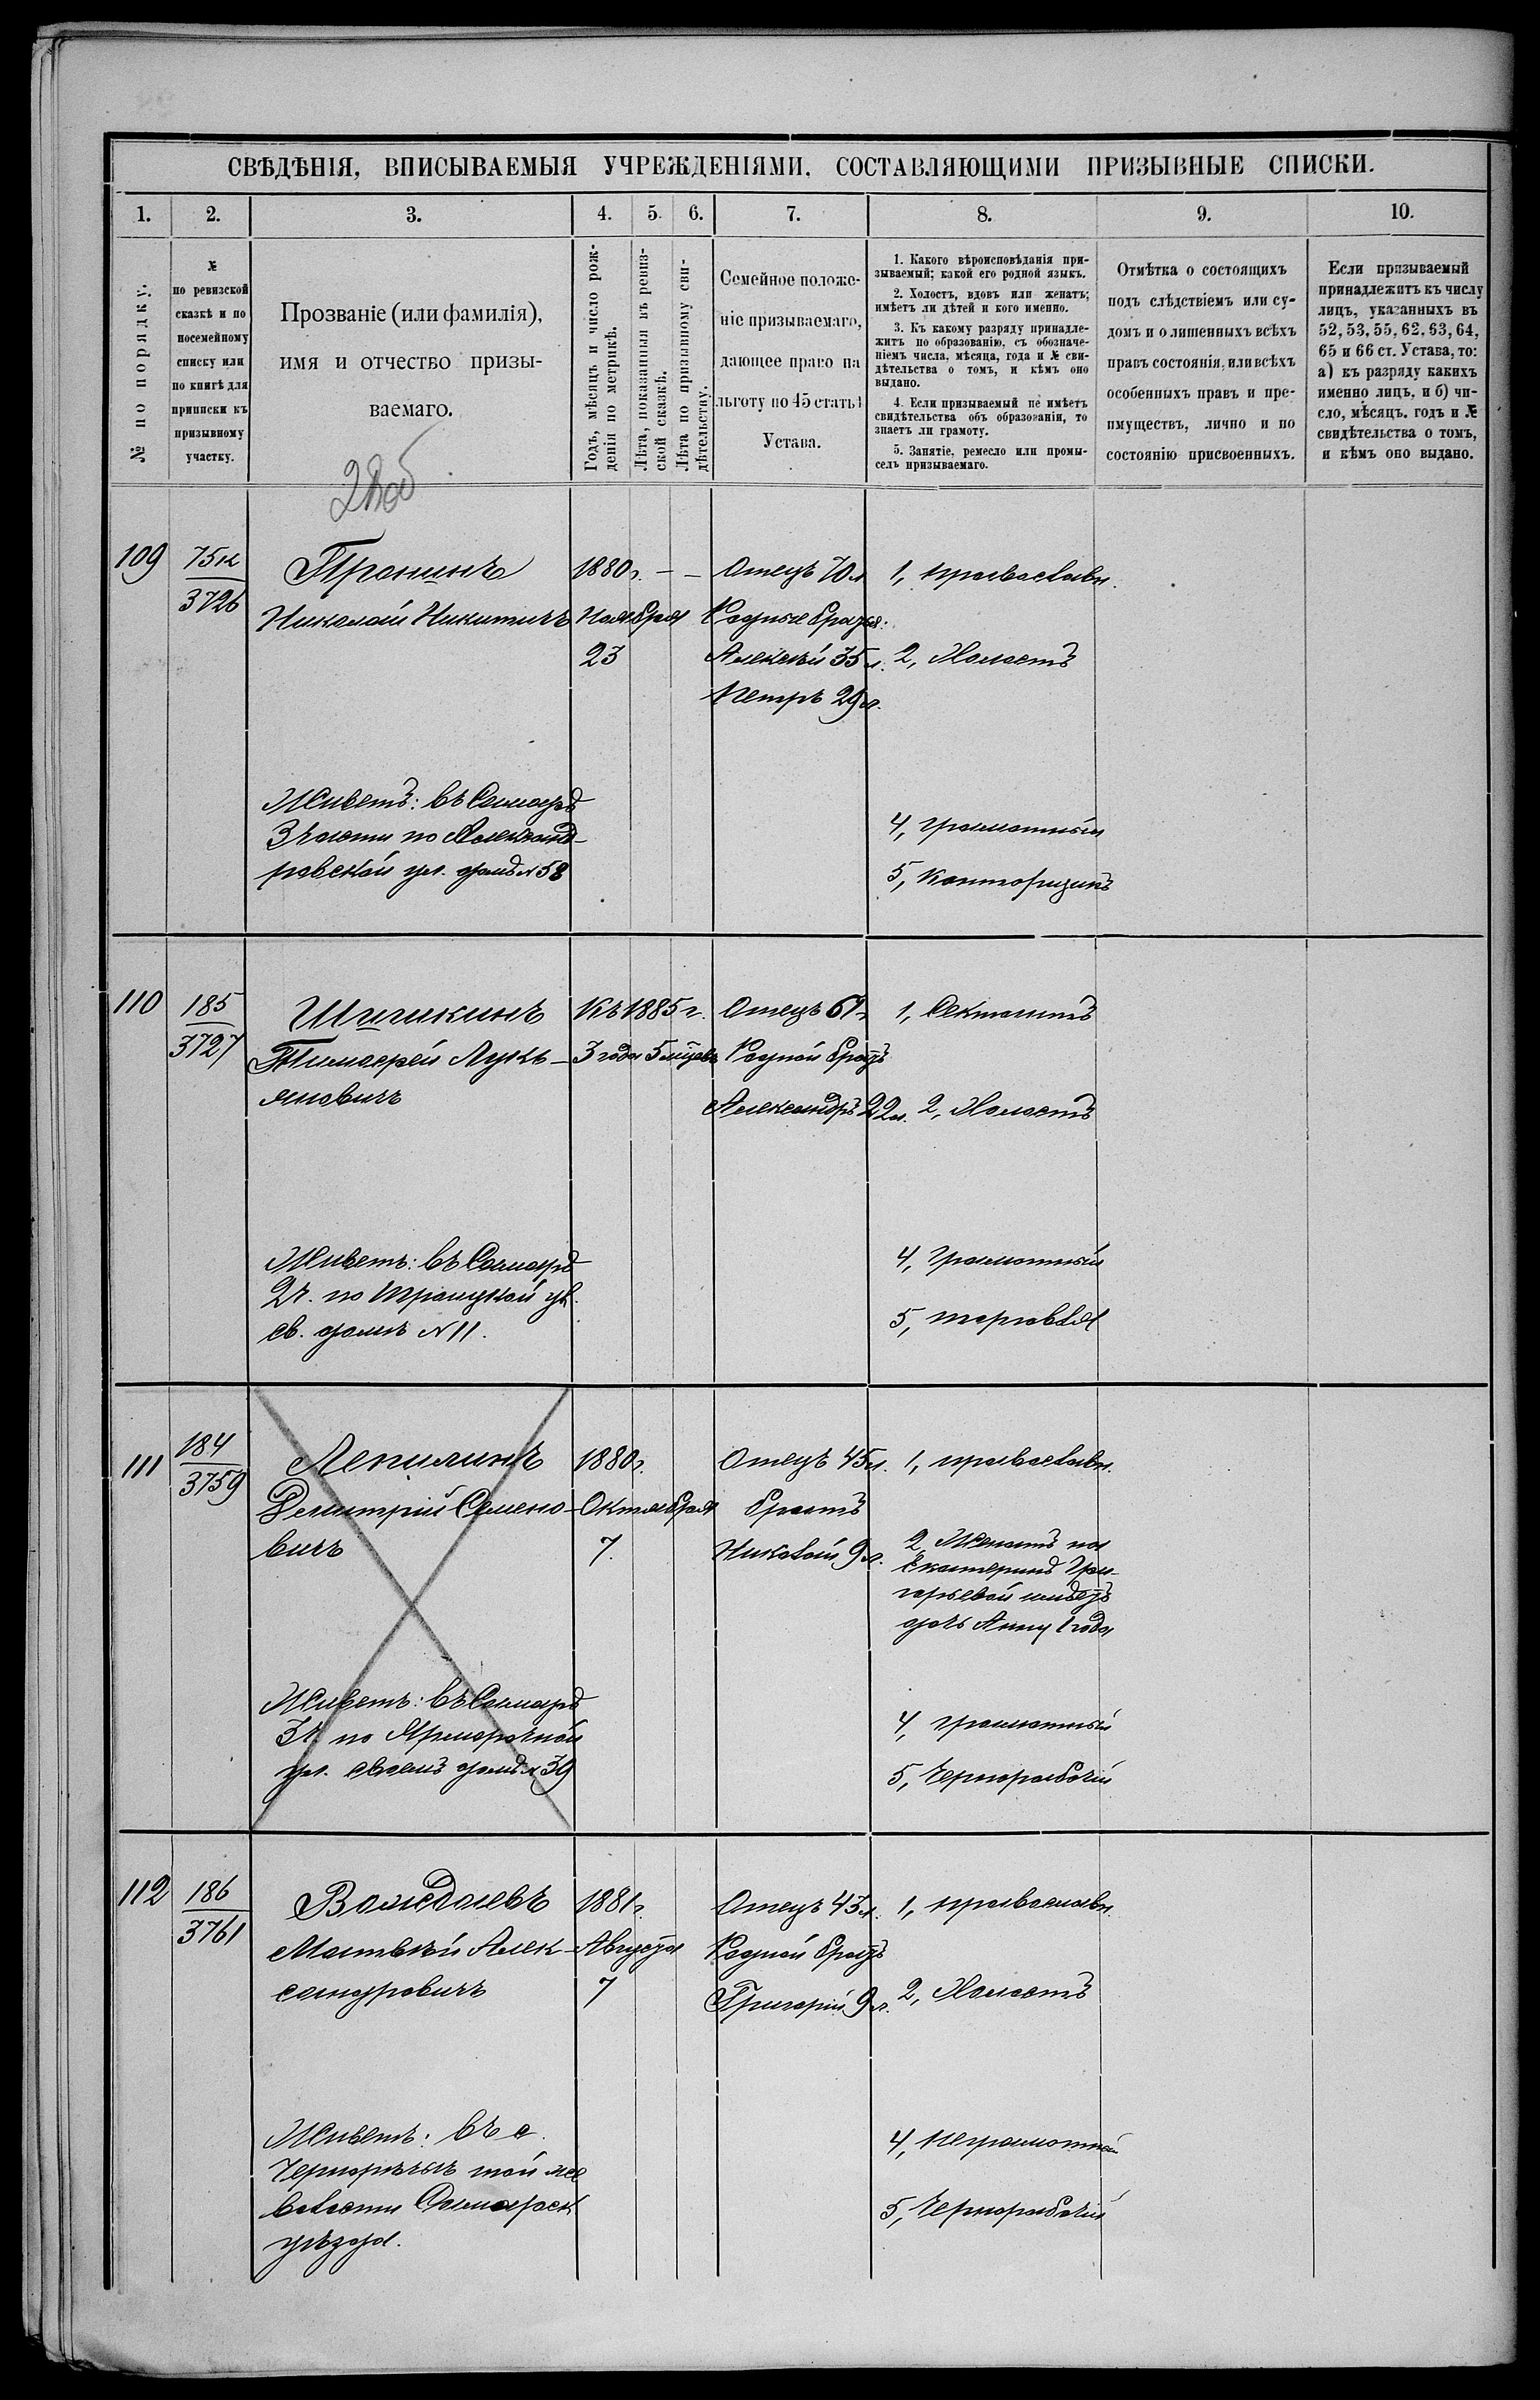 СВѢДѢНІЯ, ВПИСЫВАЕМЫЯ УЧРЕЖДЕНІЯМИ, СОСТАВЛЯЮЩИМИ ПРИЗЫВНЫЕ СПИСКИ.
1. 2. 3. 4. 5. 6. 7. 8. 9. 10.
№ по порядку.
№
по ревизской
сказкѣ и по
посемейному
списку или
по книгѣ для
приписки къ
призывному
участку.
Прозваніе (или фамилія),
имя и отчество призы-
ваемаго.
Годъ, мѣсяцъ и число рож-
денія по метрикѣ.
Лѣта, показанныя въ ревиз-
ской сказкѣ.
Лѣта по призывному сви-
дѣтельству.
Семейное положе-
ніе призываемаго,
дающее право на
льготу по 45 статьѣ
Устава.
1. Какого вѣроисповѣданія при-
зываемый; какой его родной языкъ.
2. Холостъ, вдовъ или женатъ;
имѣетъ ли дѣтей и кого именно.
3. Къ какому разряду принадле-
житъ по образованію, съ обозначе-
ніемъ числа, мѣсяца, года и № сви-
дѣтельства о томъ, и кѣмъ оно
выдано.
4. Если призываемый не имѣетъ
свидѣтельства объ образованіи, то
знаетъ ли грамоту.
5. Занятіе, ремесло или промы-
селъ призываемаго.
Отмѣтка о состоящихъ
подъ слѣдствіемъ или су-
домъ и о лишенныхъ всѣхъ
правъ состоянія, или всѣхъ
особенныхъ правъ и пре-
имуществъ, лично и по
состоянію присвоенныхъ.
Если призываемый
принадлежитъ къ числу
лицъ, указанныхъ въ
52, 53, 55, 62, 63, 64,
65 и 66 ст. Устава, то:
а) къ разряду какихъ
именно лицъ, и б) чи-
сло, мѣсяцъ, годъ и №
свидѣтельства о томъ,
и кѣмъ оно выдано.
109
75к
3726
Пронинъ
Николай Никитичъ
Живетъ: въ Самарѣ
3 части по Александ-
ровской ул. домъ № 58
1880 г. — —
Ноября
23
Отецъ 70 л
Родные братья:
Алексѣй 35 л.
Петръ 29 л.
1, православн.
2, Холостъ
4, грамотный
5, конторщикъ
110
185
3727
Шишкинъ
Тимофей Лукь-
яновичъ
Живетъ: въ Самарѣ
2 ч. по Троицкой ул.
св. домъ № 11.
Къ 1885 г.
3 года 5 мѣсяцевъ
Отецъ 61 г
Родной братъ
Александръ 22 л.
1, Сектантъ
2, Холостъ
4, грамотный
5, торговля
111
184
3759
Лепилинъ
Димитрій Семено-
вичъ
Живетъ: въ Самарѣ
3 ч. по Ярморочной
ул. своемъ домѣ № 39
1880 г.
Октября
7.
Отецъ 45 л.
братъ
Николай 9 л.
1, православн.
2, Женатъ на
Екатеринѣ Гри-
горьевой имѣетъ
дочь Анну 1 года
4, грамотный
5, чернорабочій
112
186
3761
Матвѣй Алек-
сандровичъ
Живетъ: въ с.
Чернорѣчьѣ той же
волости Самарск
уѣзда.
1881 г.
Августа
7
Отецъ 43 л.
Родной братъ
Григорій 9 л.
1, православн.
2, Холостъ
4, неграмотный
5, чернорабочій